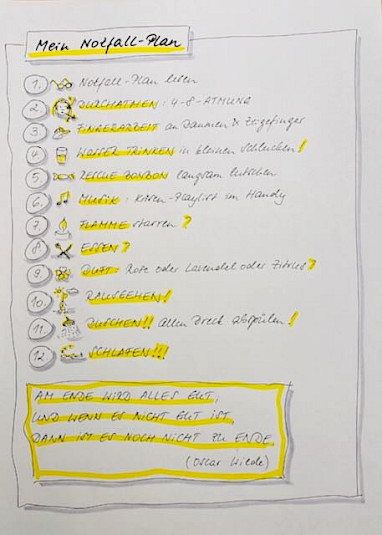 Mein Notfall-Plan
1. Notfall-Plan lesen
2. DURCHATMEN: 4-8-ATMUNG
3. FINGERARBEIT an Daumen & Zeigefinger
4. WASSER TRINKEN in kleinen Schlucken!
5. BONBON langsam lutschen
6. MUSIK: -Playlist im Handy
7. FLAMME starren?
8. ESSEN?
9. DUFT: Rose oder Lavendel oder Zitrus?
10. RAUSGEHEN!
11. DUSCHEN!! allen Dreck abspülen!
12. SCHLAFEN!!!
AM ENDE WIRD ALLES GUT,
UND WENN ES NICHT GUT IST
DANN IST ES NOCH NICHT ZU ENDE
(Oscar Wilde)